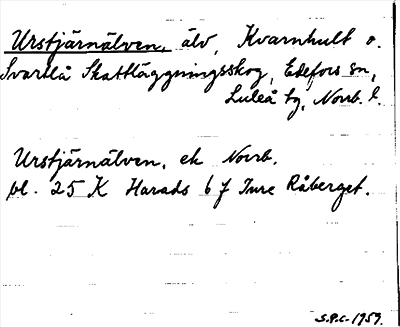 Urstjärnälven, älv, Kvarnhult o.
Svartlå Skattläggningsskog, Edefors sn,
Luleå tg, Norrb. l.
Urstjärnälven, ek Norrb.
bl. 25 K Harads 6 f Inre Råberget.
S.P.C. 1959.